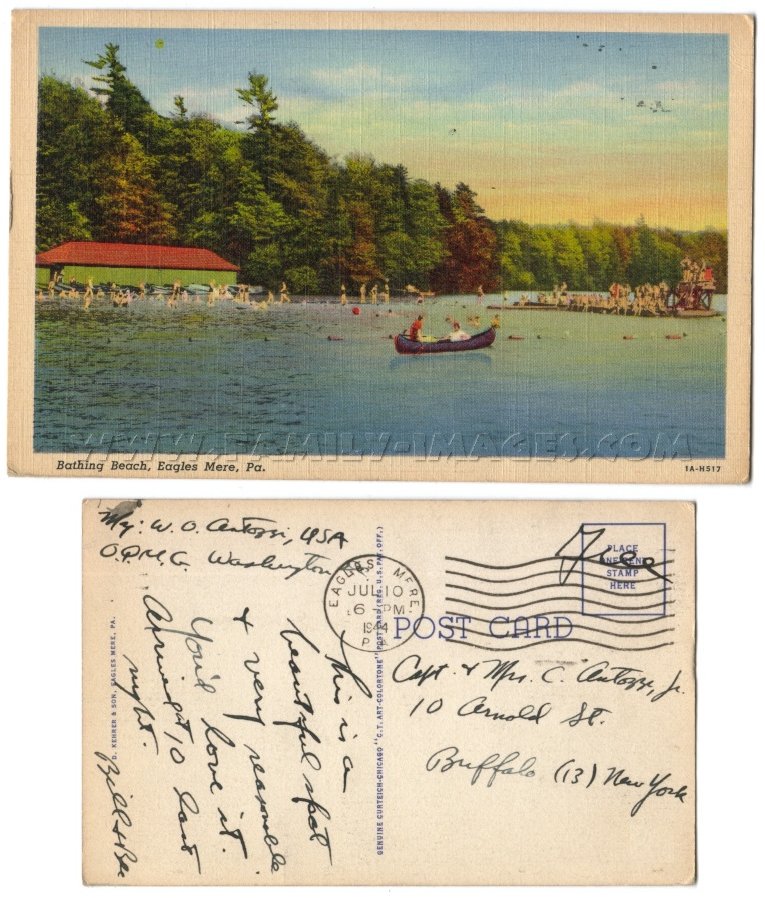 WWW.FAMILY-IMAGES.COM
Bathing Beach, Eagles Mere, Pa.
1A-H517
My: W. O. Antozzi, USA
O.Q.M.G. Washington
EAGLES MERE
JUL 10
6 PM
1944
PA.
Free
PLACE
ONE CENT
STAMP
HERE
POST CARD
Capt. & Mrs. C. Antozzi, Jr.
10 Arnold St.
Buffalo (13) New York
This is a
beautiful spot
& very reasonable
You'd love it.
Arrived at 10 last
night.
Bill & Bee
D. KEHRER & SON, EAGLES MERE, PA.
GENUINE CURTEICH-CHICAGO "C.T. ART-COLORTONE" POST CARD (REG. U.S. PAT. OFF.)